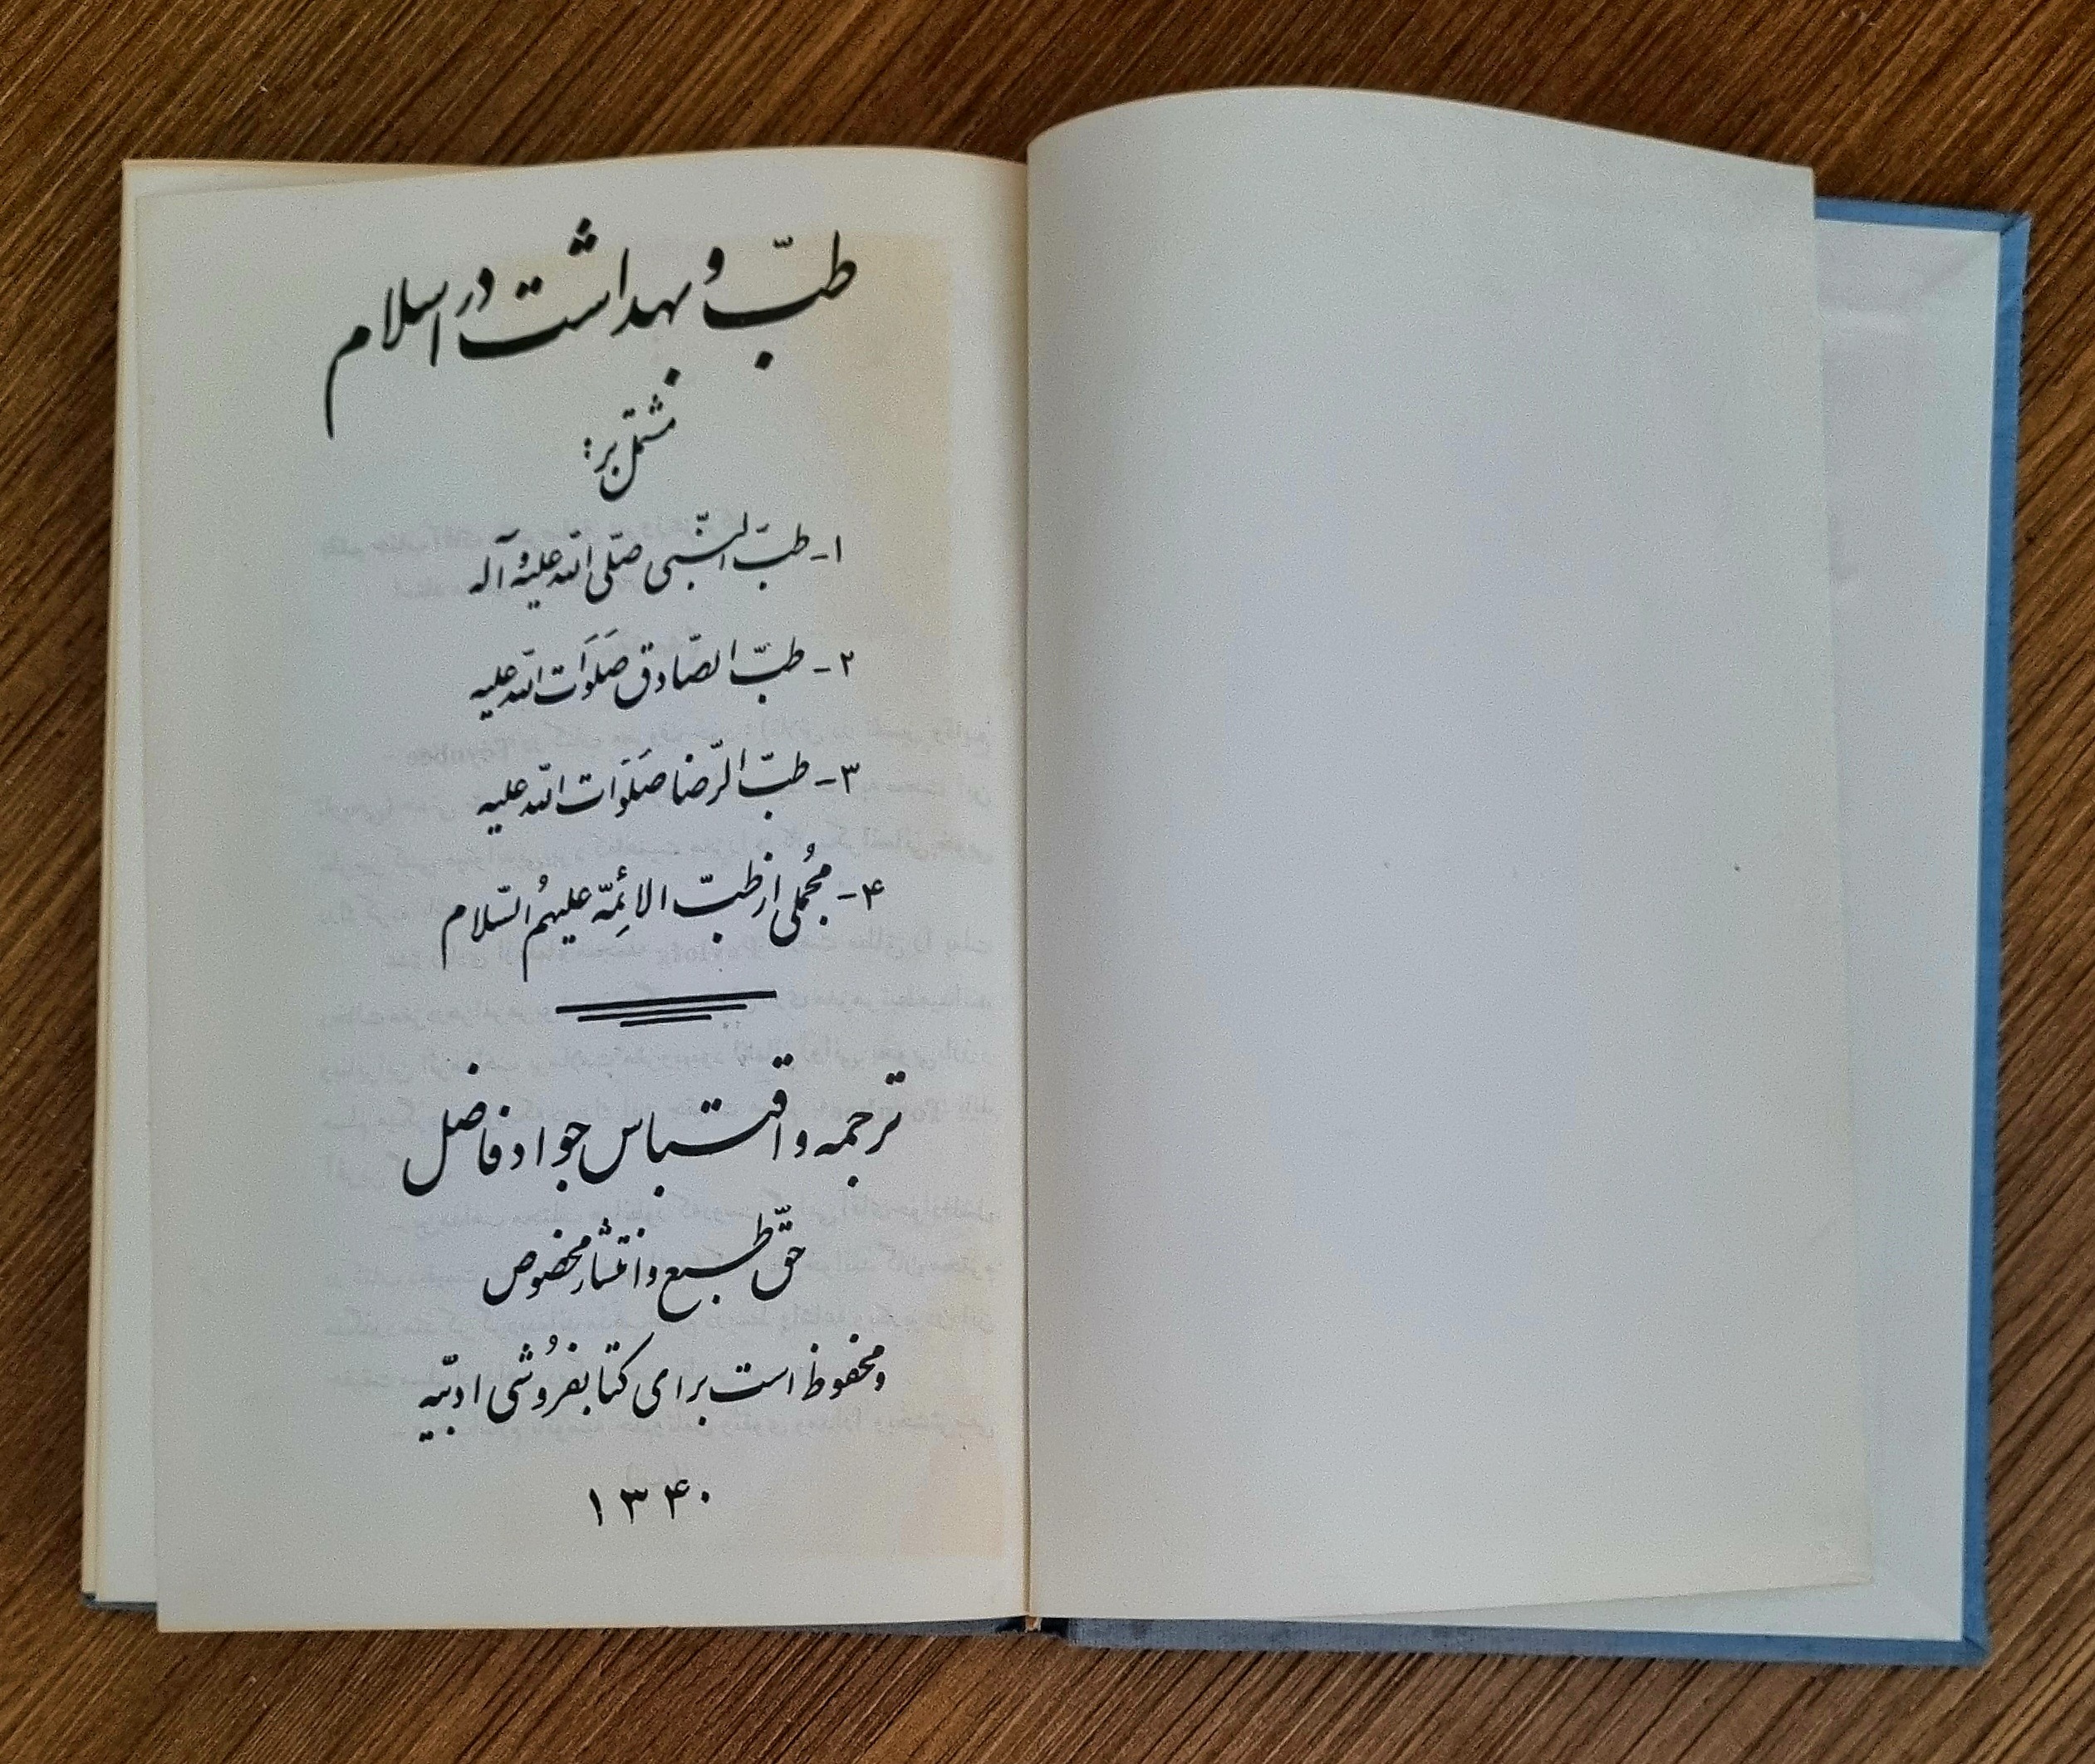 طبّ و بهداشت در اسلام
مشتمل بر:
۱- طبّ النّبی صلّی اللّه علیه و آله
۲- طبّ الصّادق صَلَوَات اللّه علیه
۳- طبّ الرّضا صَلَوَات اللّه علیه
۴- مُجملی از طبّ الائِمّه علیهمُ السّلام
ترجمه و اقتباس جواد فاضل
حقّ طبع و انتشار مخصوص
و محفوظ است برای کتابفروُشی ادبیّه
۱۳۴۰